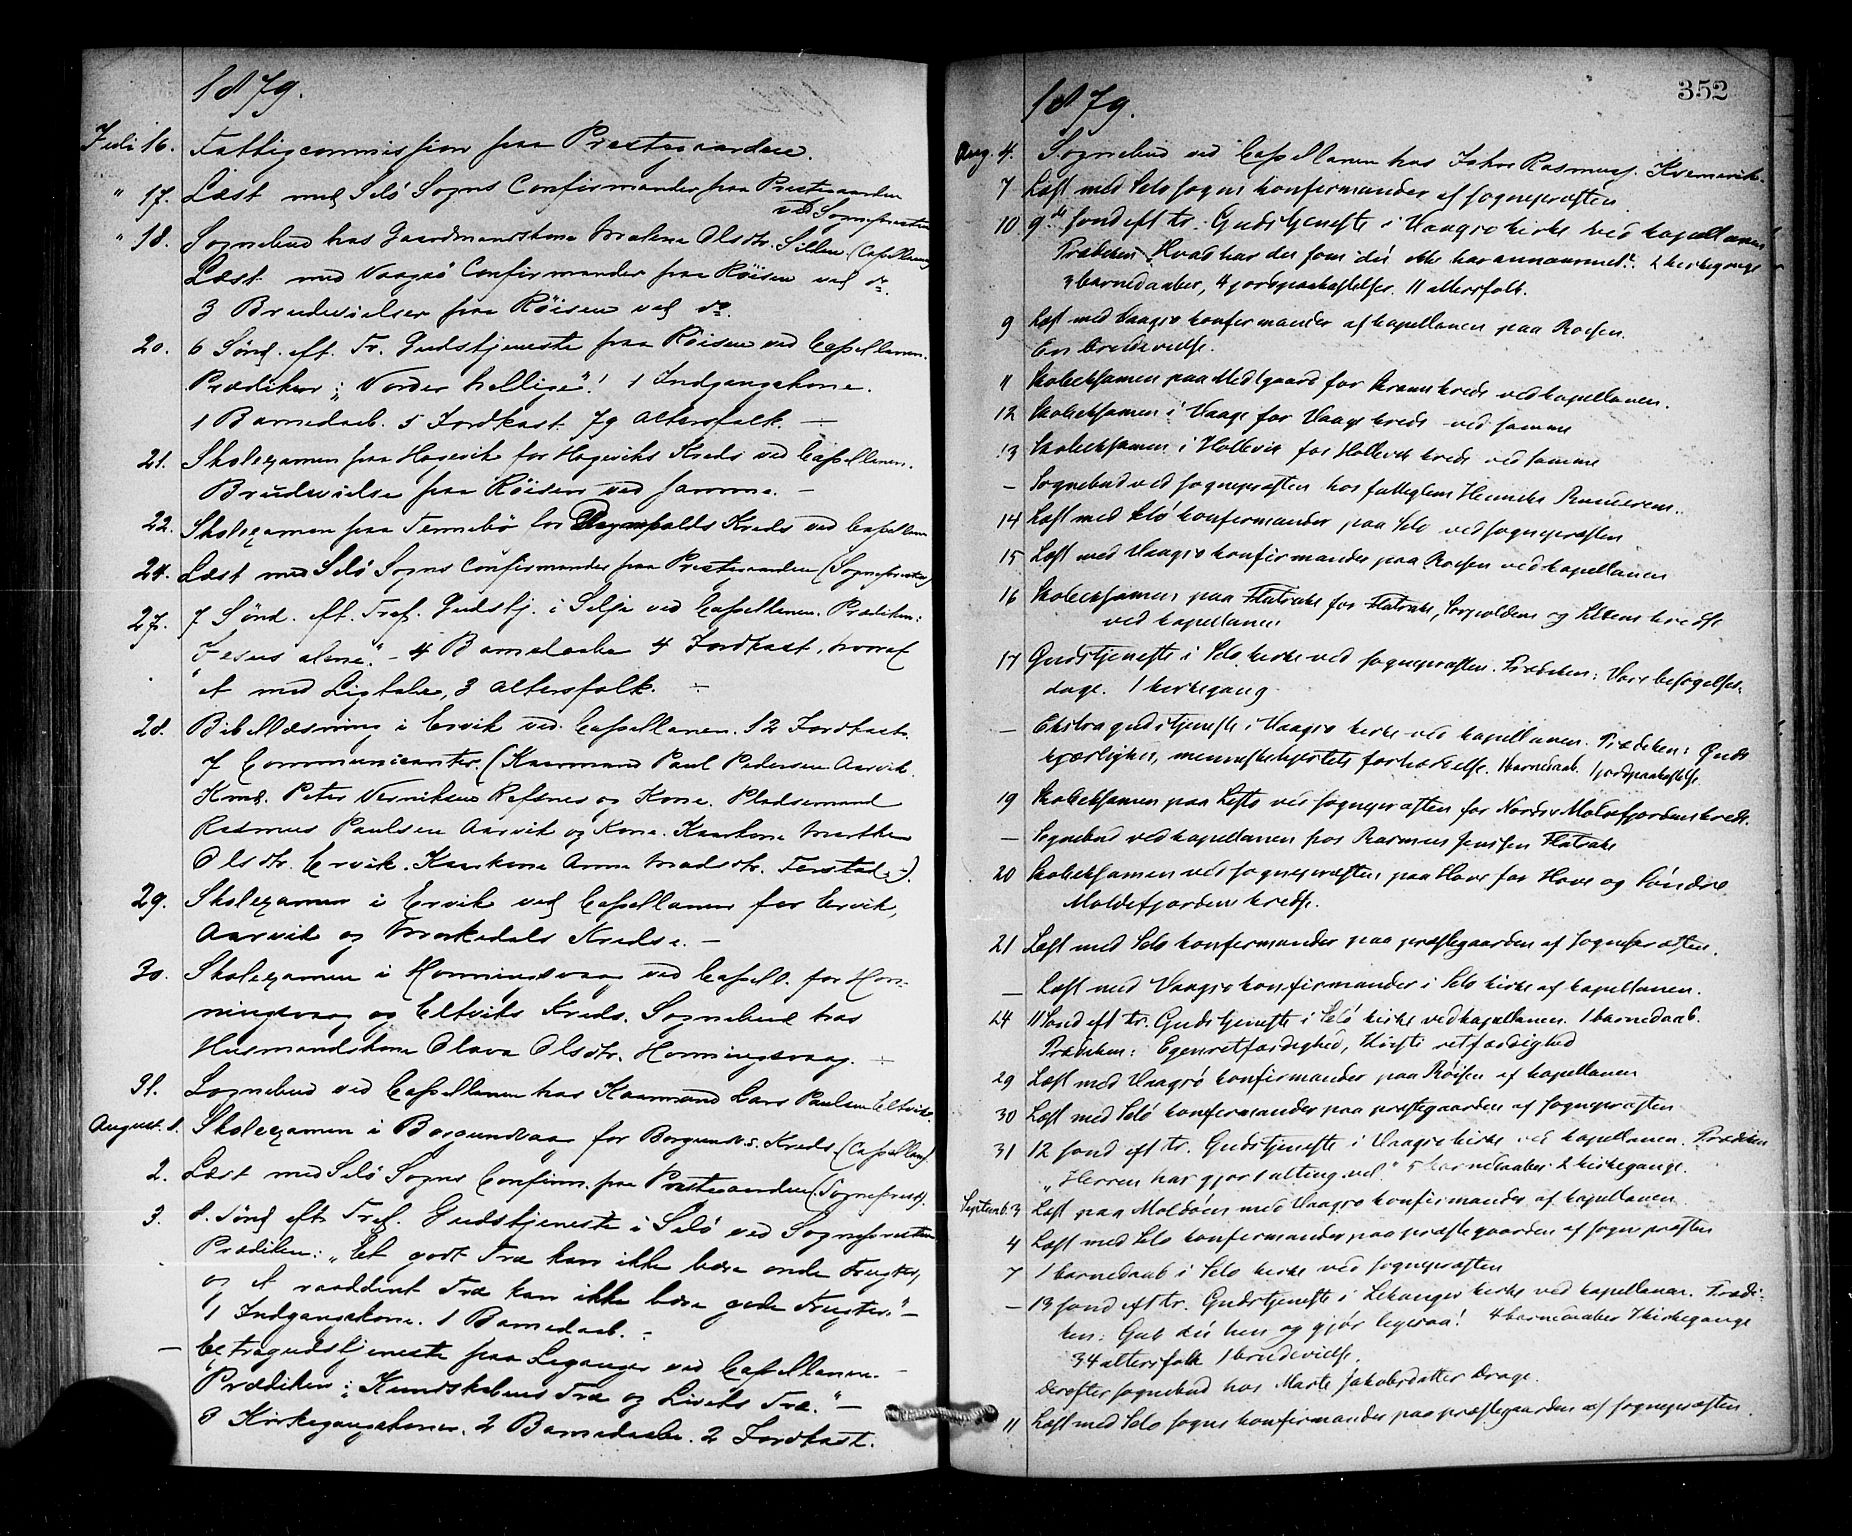 1879.
Juli 16. Fattigcommission paa Præstegaarden.
" 17. Læst med Selö Sogns Confirmander paa Præstegaarden
ved Sognepræsten
" 18. Sognebud hos Gaardmandskone Malene Olsdtr. Sillen (Capellanen)
Læst med Vaagsö Confirmander paa Röisen ved do.
3 Brudevielser paa Röisen ved do.
20. 6 Sönd. eft. Tr. Gudstjeneste paa Röisen ved Capellanen.
Prædiken: "Vorder hellige"! 1 Indgangskone.
1 Barnedaab. 5 Jordkast. 79 Altersfolk. —
21. Skolexamen paa Hagevik for Hageviks Kreds ved Capellanen.
Brudevielse paa Röisen ved samme. —
22. Skolexamen paa Tennebö for Degnepolds Kreds ved Capellanen
24. Læst med Selö Sogns Confirmander paa Præstegaarden (Sognepræsten)
27. 7 Sönd. eft. Tref. Gudstj. i Selje ved Capellanen. Prædiken:
"Jesus alene". - 4 Barnedaabe 4 Jordkast, hvoraf
et med Ligtale, 3 Altersfolk. —
28. Bibellæsning i Ervik ved Capellanen. 12 Jordkast.
7 Communicanter (Kaarmand Paul Pedersen Aarvik.
Kmd. Peter Verniksen Refsnes og Kone. Pladsemand
Rasmus Paulsen Aarvik og Kone. Kaarkone Marthe
Olsdtr. Ervik. Kaarkone Anne Madsdtr. Ferstad.).
29. Skolexamen i Ervik ved Capellanen for Ervik,
Aarvik og Morkedals Kredse. —
30. Skolexamen i Honningsvaag ved Capell. for Hon-
ningsvaag og Eltviks Kreds. Sognebud hos
Husmandskone Olava Olsdtr. Honningsvaag. —
31. Sognebud ved Capellanen hos Kaarmand Lars Paulsen Eltvik.
August. 1. Skolexamen i Borgundvaag for Borgundv.s. Kreds. (Capellan).
2. Læst med Selö Sogns Confirm. paa Præstegaarden (Sognepræst).
3. 8. Sönd eft. Tref. Gudstjeneste i Selö ved Sognepræsten
Prædiken: "Et godt Træ kan ikke bære onde Frugter,
og et raaddent Træ kan ikke bære gode Frugter." —
1 Indgangskone. 1 Barnedaab. —
— Extragudstjeneste paa Leganger ved Capellanen. —
Prædiken: "Kundskabens Træ og Livets Træ." —
3 Kirkegangskoner. 2 Barnedaabe. 2 Jordkast.
352
1879.
Aug. 4. Sognebud ved Capellanen hos Jakob Rasmuss. Kvernevik.
7 Læst med Selö sogns konfirmander af sognepræsten
10 9de sönd eft tr. Gudstjeneste i Vaagsö kirke ved kapellanen
Prædiken: Hvad har du som du ikke har annammet?. 2 kirkegange
3 barnedaaber, 4 jordpaakastelser. 11 altersfolk.
9 Læst med Vaagsö konfirmander af kapellanen paa Roisen.
En brudevielse.
11 Skoleeksamen paa Medlgaard for Skram kreds ved kapellanen.
12 Skoleeksamen i Vaage for Vaage kreds ved samme
13 Skoleeksamen i Hollevik for Hollevik kreds ved samme
— Sognebud ved sognepræsten hos fattiglem Henrik
14 Læst med Selö konfirmander paa Selö ved sognepræsten
15 Læst med Vaagsö konfirmander paa Roisen ved kapellanen
16 Skoleeksamen paa Flatrake for Flatrake, og Sillens kredse
ved kapellanen
17 Gudstjeneste i Selö kirke ved sognepræsten. Prædiken: Vore besögelses-
dage. 1 kirkegang
— Ekstra gudstjeneste i Vaagsö kirke ved kapellanen. Prædiken: Guds
kjærlighed, menneskehjertets forhærdelse. 1 barnedaab. 1 jordpaakastelse.
19 Skoleeksamen paa Lefto ved sognepræsten for Nordre Moldefjordens kreds.
— Sognebud ved kapellanen hos Rasmus Jenssen Flatrake
20 Skoleeksamen ved sognepræsten paa Hove for Hove og Söndre
Moldefjordens kredse.
21 Læst med Selö konfirmander paa præstegaarden af sognepræsten.
— Læst med Vaagsö konfirmander i Selö kirke af kapellanen.
24 11 sönd eft tr. Gudstjeneste i Selö kirke ved kapellanen. 1 barnedaab.
Prædiken: Egenretfærdighed, Kristi retfærdighed
29 Læst med Vaagsö konfirmander paa Röisen af kapellanen
30 Læst med Selö konfirmander paa præstegaarden af sognepræsten
31 12 sönd eft tr. Gudstjeneste i Vaagsö kirke ved kapellanen. Prædiken
"Herren har gjort alting vel" 5 barnedaaber 2 kirkegange.
Septemb. 3 Læst paa Moldöen med Vaagsö konfirmander af kapellanen
4 Læst med Selö konfirmander paa præstegaarden af sognepræsten
7 1 barnedaab i Selö kirke ved sognepræsten
— 13 sönd eft tr. Gudstjeneste i Lekanger kirke ved kapellanen. Prædi-
ken: Gak du hen og gjör ligesaa! 4 barnedaaber 1 kirkegange
34 altersfolk 1 brudevielse.
Derefter sognebud hos Marte Jakobsdatter Drage.
11 Læst med Selö sogns konfirmander paa præstegaarden af sognepræsten.